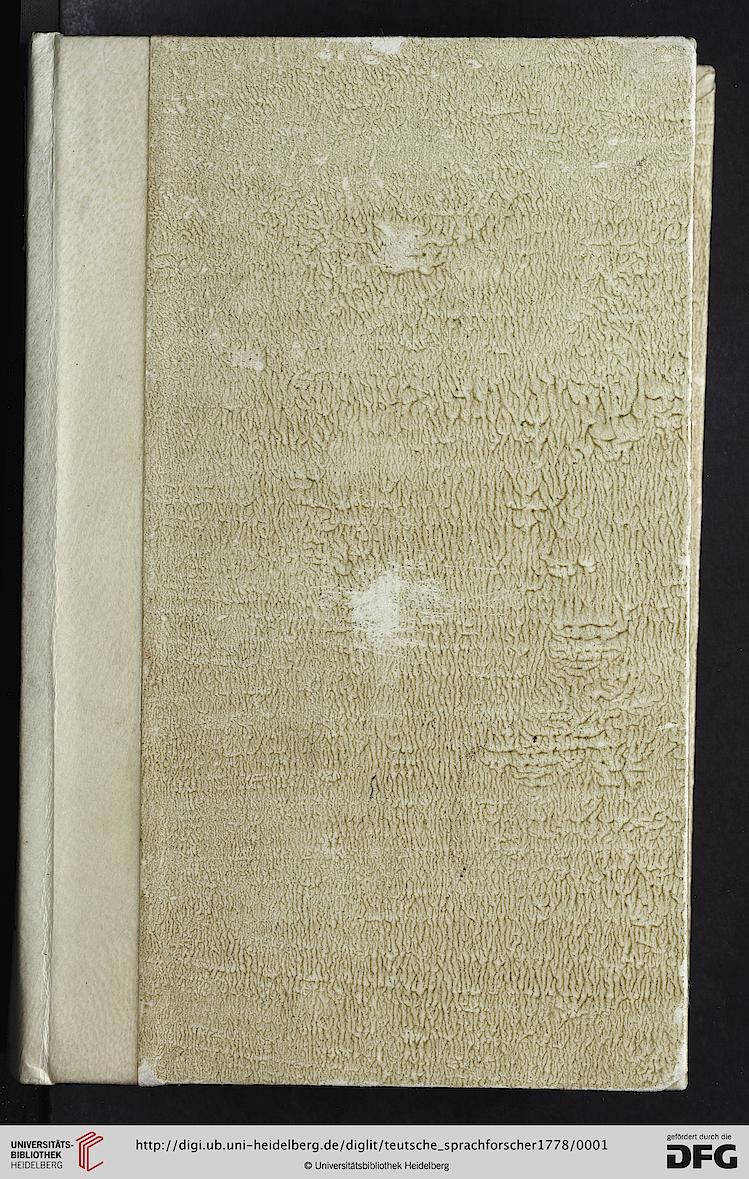 UNIVERSITÄTS-
BIBLIOTHEK
HEIDELBERG
http://digi.ub.uni-heidelberg.de/diglit/teutsche_sprachforscher1778/0001
© Universitätsbibliothek Heidelberg
gefördert durch die
DFG